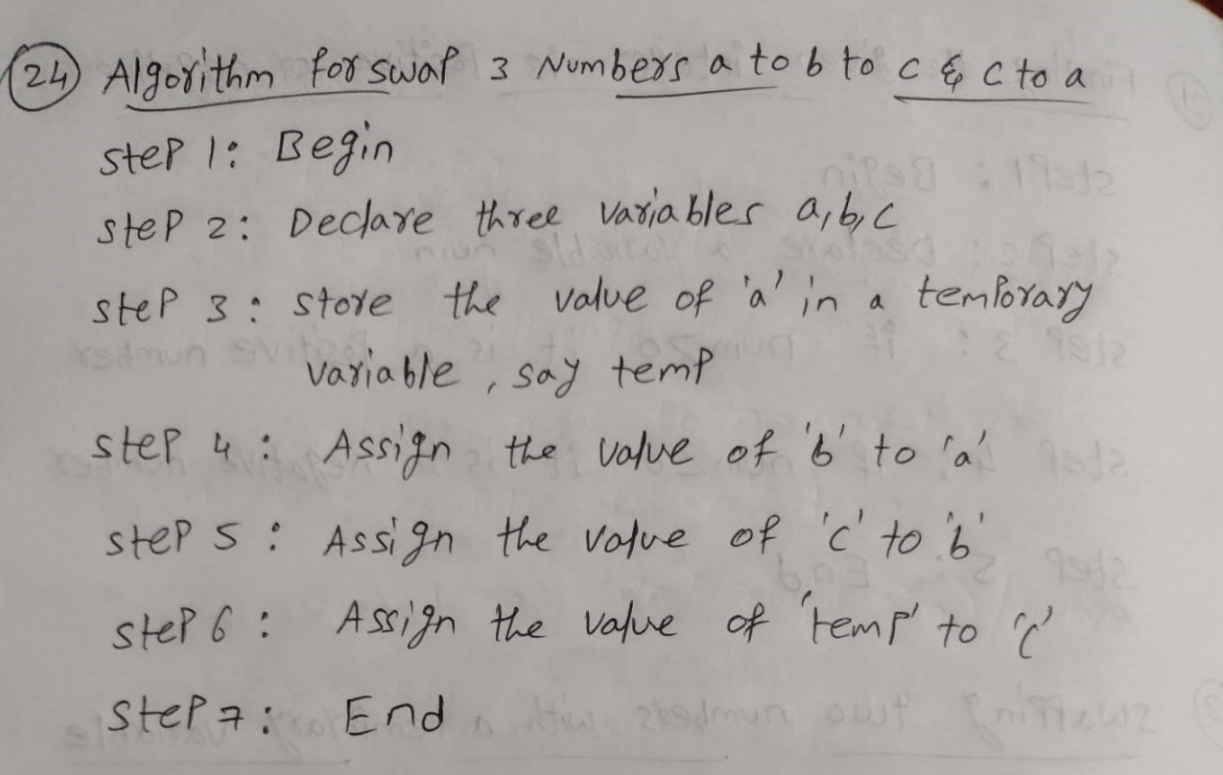 24 Algorithm for swap 3 Numbers a to b to c & c to a
step 1: Begin
step 2: Declare three variables a,b,c
step 3: store the value of 'a' in a temporary
variable, say temp
step 4: Assign the value of 'b' to 'a'
step 5: Assign the value of 'c' to 'b'
step 6: Assign the value of 'temp' to 'c'
step 7: End